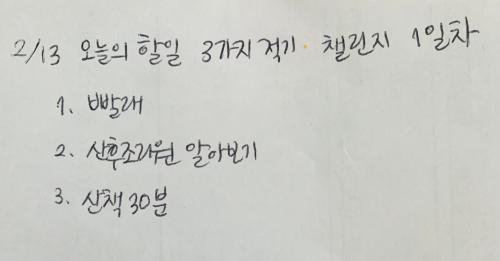 2/13 오늘의 할일 3가지 적기 챌린지 1일차
1. 빨래
2. 산후조리원 알아보기
3. 산책 30분